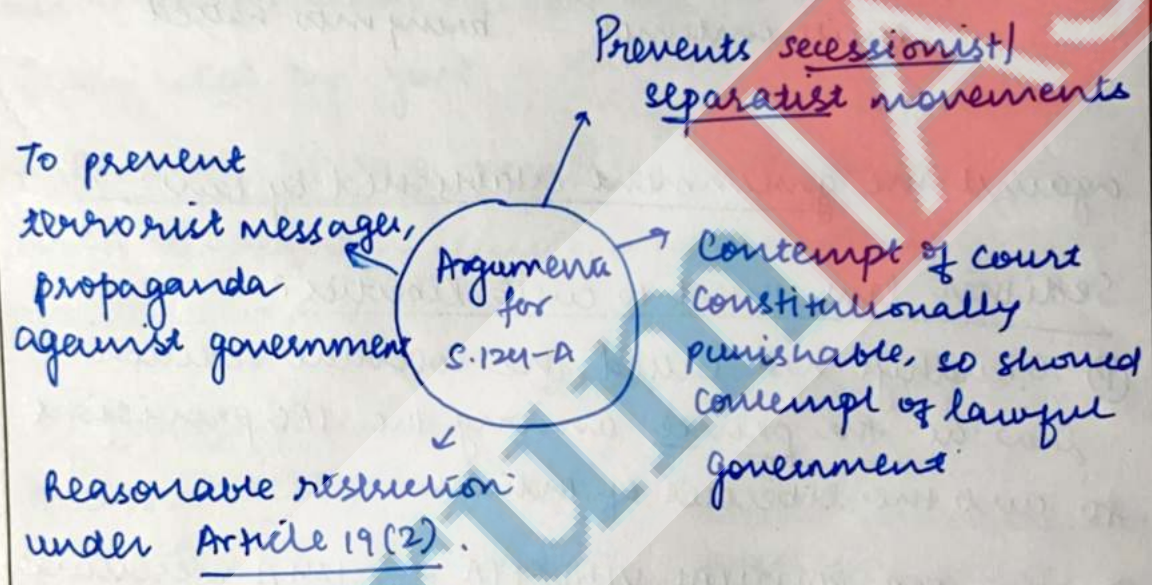 Prevents secessionist/
separatist movements
To prevent
terrorist messages,
propaganda
against government
Arguments
for
S.124-A
Contempt of court
constitutionally
punishable, so should
contempt of lawful
government
Reasonable restriction
under Article 19(2).
IAS
rum